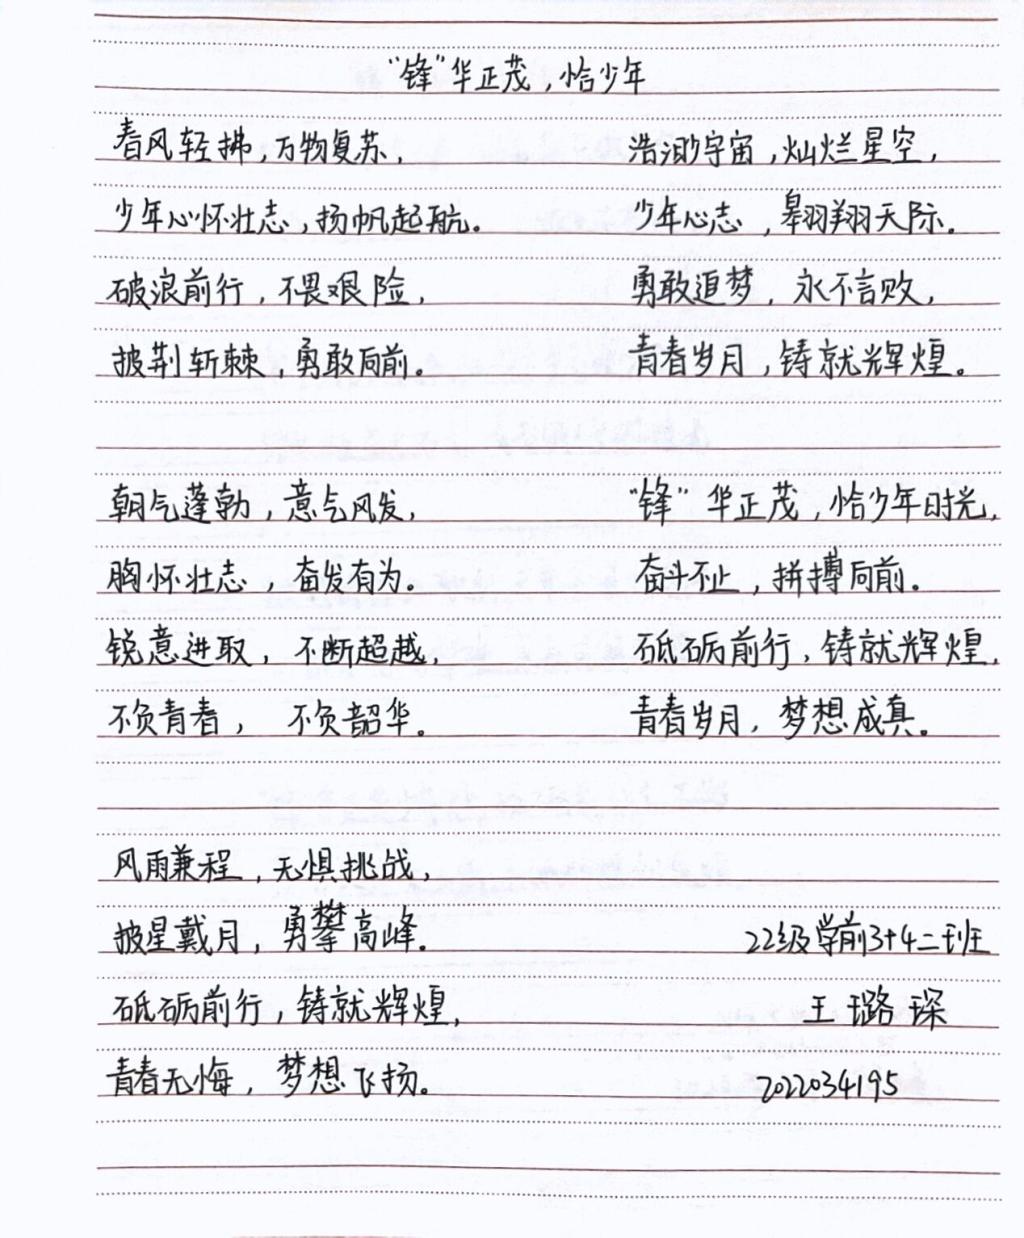 “锋”华正茂，恰少年
春风轻拂，万物复苏，
少年心怀壮志，扬帆起航。
破浪前行，不畏艰险，
披荆斩棘，勇敢向前。
朝气蓬勃，意气风发，
胸怀壮志 奋发有为。
锐意进取，不断超越，
不负青春， 不负韶华。
风雨兼程，无惧挑战，
披星戴月，勇攀高峰。
砥砺前行，铸就辉煌，
青春无悔，梦想飞扬。
浩渺宇宙，灿烂星空，
少年心志，翱翔天际。
勇敢追梦，永不言败，
青春岁月，铸就辉煌。
“锋”华正茂，恰少年时光，
奋斗不止，拼搏向前。
砥砺前行，铸就辉煌，
青春岁月，梦想成真。
22级学前3+4二班
王璐琛
2022034195